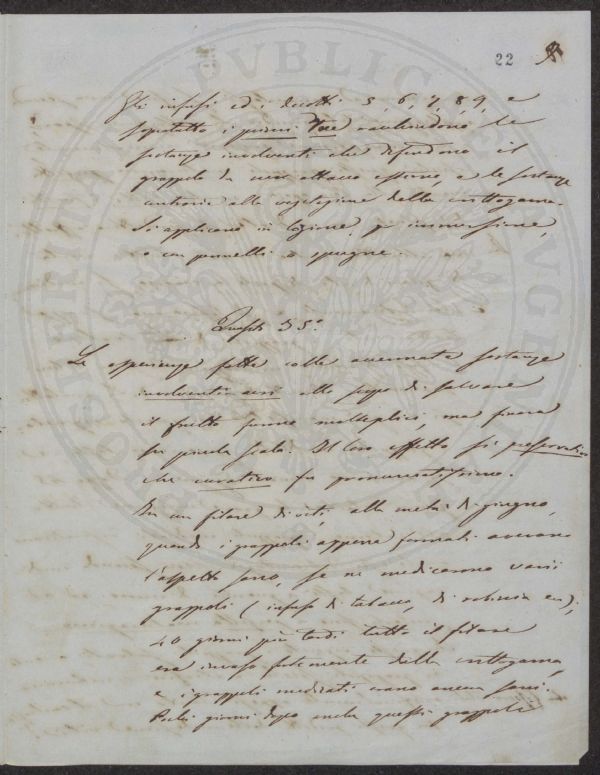 22
Gli infusi ed i decotti 5, 6, 7, 8, 9, e
sopratutto i primi racchiudono le
sostanze involventi che difendono il
grappolo da ogni attacco esterno, e le sostanze
contrarie alla vegetazione della crittogama.
Si applicano in lozione, p immersione,
o con pennelli o spugne.
Quesito 35.°
Le esperienze fatte colle accennate sostanze
involventi allo scopo di salvare
il frutto sono molteplici, ma finora
su piccola scala. Il loro effetto sì preservativo
che curativo fu pronunciatissimo.
In un filare di viti, alla metà di giugno,
quando i grappoli appena formati avevano
l'aspetto sano, se ne medicarono varii
grappoli (infuso di tabacco, di robinia ecc);
40 giorni più tardi tutto il filare
era invaso fortemente dalla crittogama,
e i grappoli medicati erano ancora sani.
Pochi giorni dopo anche questi grappoli